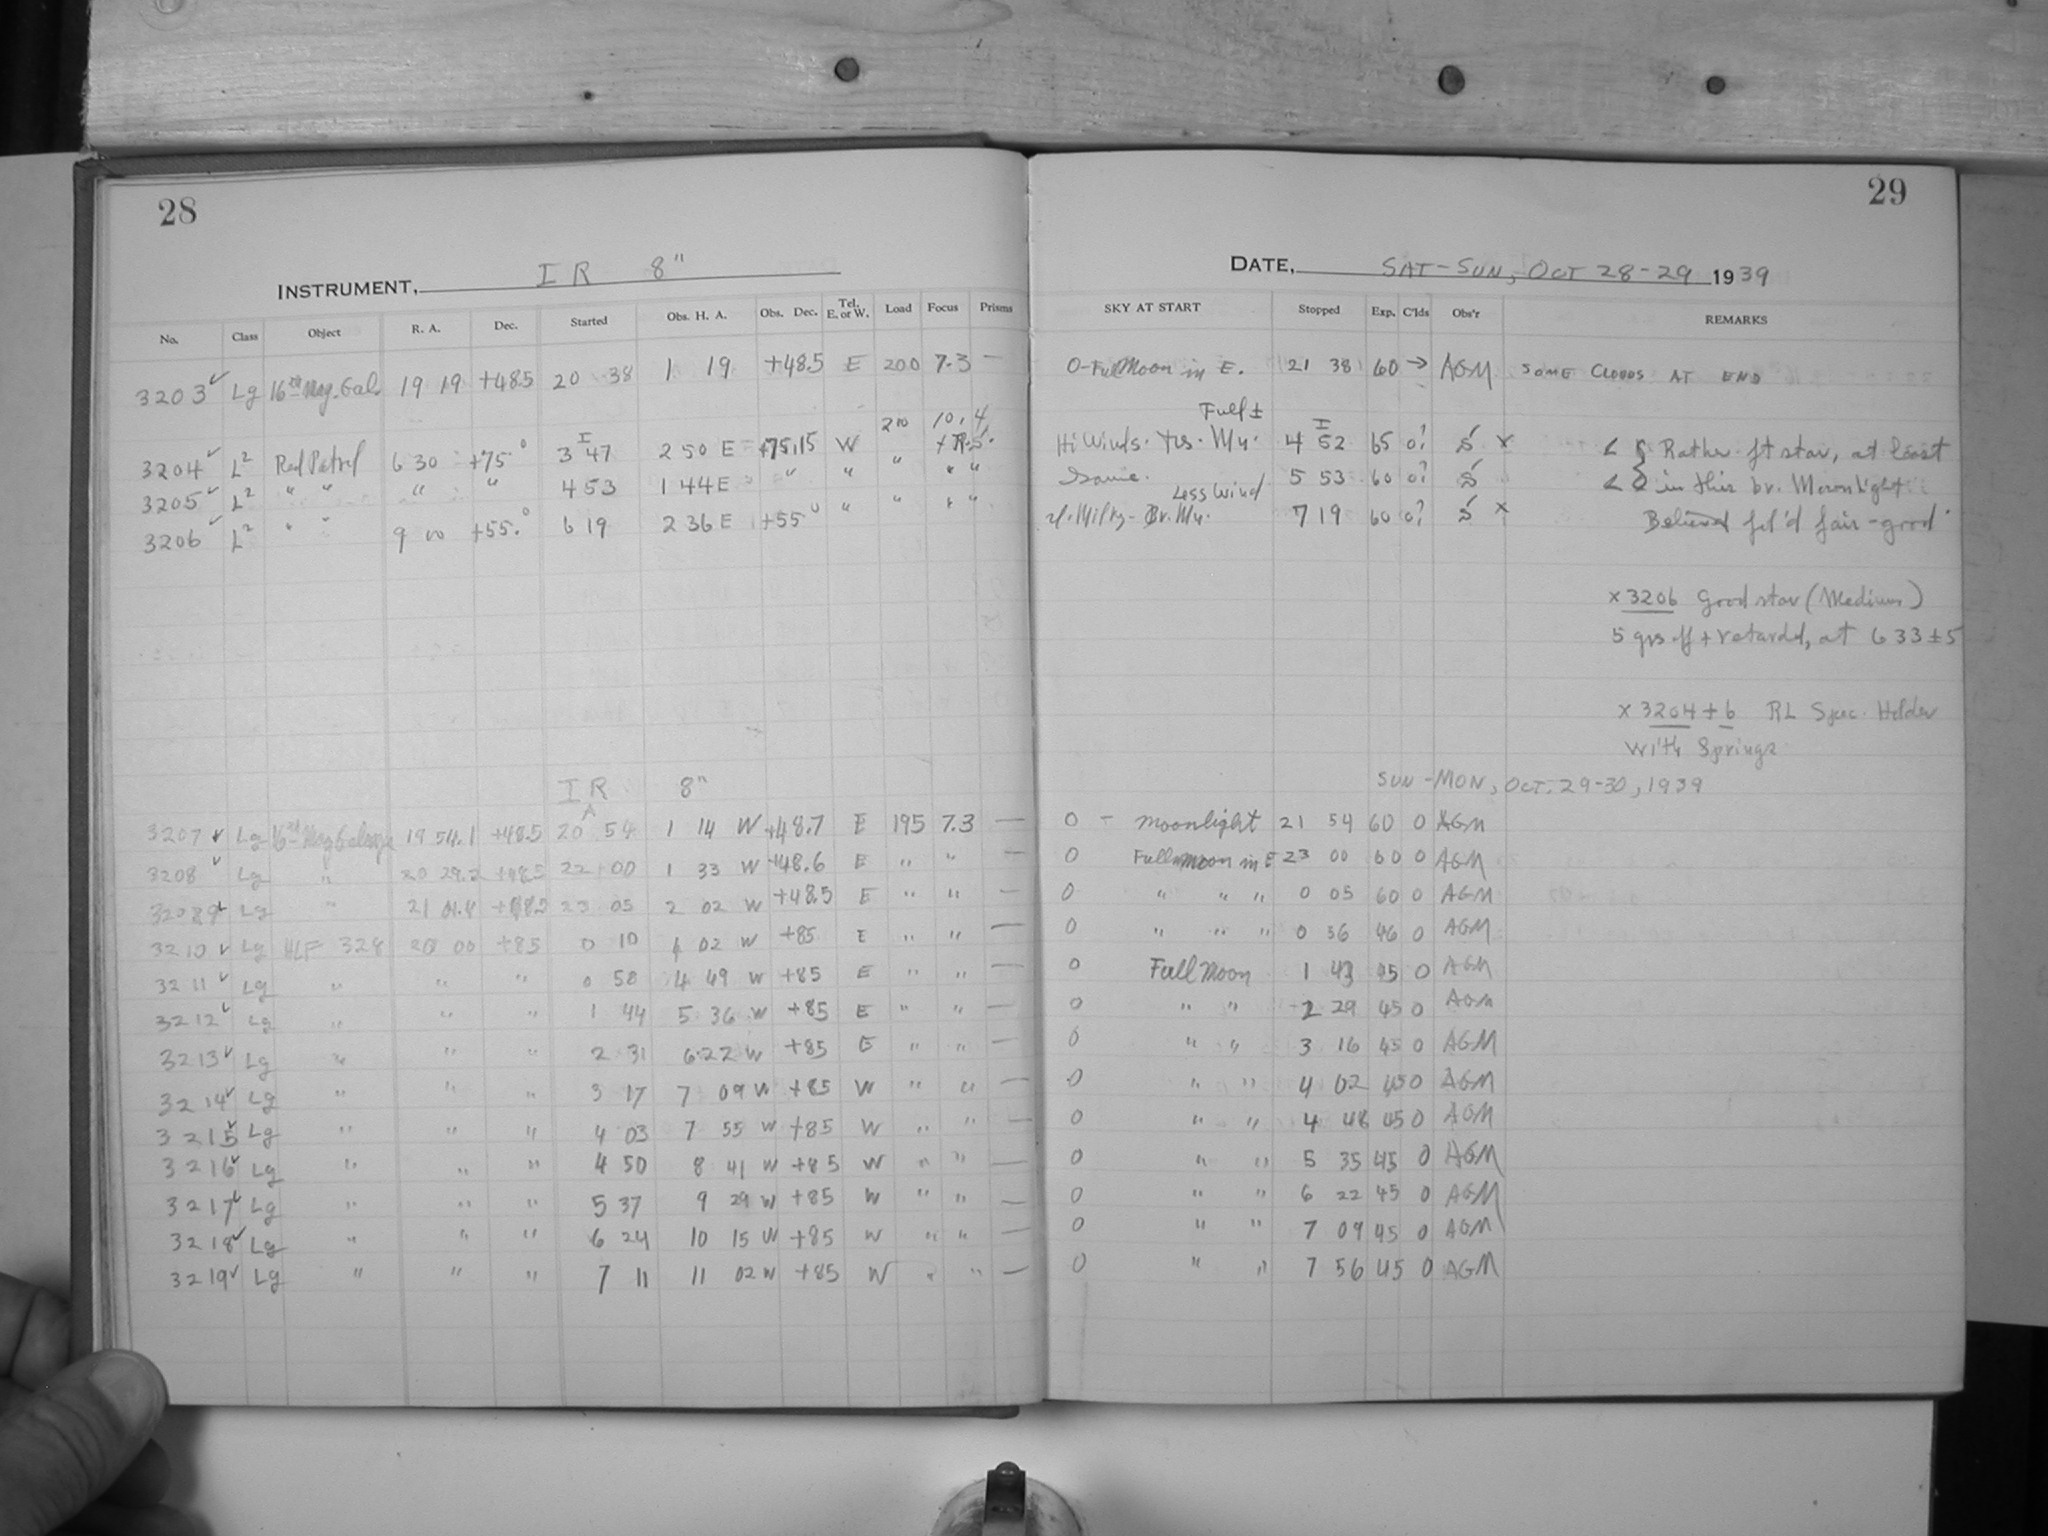 28
INSTRUMENT, IR 8"
No. Class Object R. A. Dec. Started Obs. H. A. Obs. Dec. Tel. E. or W. Load Focus Prisms
3203 ✓ Lg 16th Mag. Gal. 19 19 +48.5 20 38 1 19 +48.5 E 200 7.3 —
3204 ✓ L² Red Patrol 6 30 +75° 3 47 2 50 E +75.15 W 210 10.4
3205 ✓ L² " " " " 4 53 1 44 E " " " " "
3206 ✓ L² " " 9 00 +55.° 6 19 2 36 E +55° " " " "
IR 8"
3207 ✓ Lg 16th Mag Galaxy 19 54.1 +48.5 20 54 1 14 W +48.7 E 195 7.3 —
3208 ✓ Lg " 20 29.2 +48.5 22 00 1 33 W +48.6 E " " —
3209 ✓ Lg " 21 01.4 +48.5 23 05 2 02 W +48.5 E " " —
3210 ✓ Lg 328 20 00 +85 0 10 4 02 W +85 E " " —
3211 ✓ Lg " " " 0 58 4 49 W +85 E " " —
3212 ✓ Lg " " " 1 44 5 36 W +85 E " " —
3213 ✓ Lg " " " 2 31 6 22 W +85 E " " —
3214 ✓ Lg " " " 3 17 7 09 W +85 W " " —
3215 ✓ Lg " " " 4 03 7 55 W +85 W " " —
3216 ✓ Lg " " " 4 50 8 41 W +85 W " " —
3217 ✓ Lg " " " 5 37 9 29 W +85 W " " —
3218 ✓ Lg " " " 6 24 10 15 W +85 W " " —
3219 ✓ Lg " " " 7 11 11 02 W +85 W " " —
29
DATE, SAT-SUN, OCT 28-29 1939
SKY AT START Stopped Exp. C'lds Obs'r REMARKS
0-Full Moon in E. 21 38 60 → AGM SOME CLOUDS AT END
Full ±
Hi Winds. 4 52 65 0? S x < { Rather ft star, at least
Same. 5 53 60 0? S < { in this br. Moonlight
Less Wind
Milky- Br. 7 19 60 0? S x Believed fair-good
x 3206 Good star (Medium)
5 grs off + retarded, at 6 33±5
x 3204 + 6 RL Spec. Holder
With Springs
SUN-MON, OCT. 29-30, 1939
0 - moonlight 21 54 60 0 AGM
0 Full moon in E 23 00 60 0 AGM
0 " " " 0 05 60 0 AGM
0 " " " 0 56 46 0 AGM
0 Full Moon 1 43 45 0 AGM
0 " " 2 29 45 0 AGM
0 " " 3 16 45 0 AGM
0 " " 4 02 45 0 AGM
0 " " 4 48 45 0 AGM
0 " " 5 35 45 0 AGM
0 " " 6 22 45 0 AGM
0 " " 7 09 45 0 AGM
0 " " 7 56 45 0 AGM